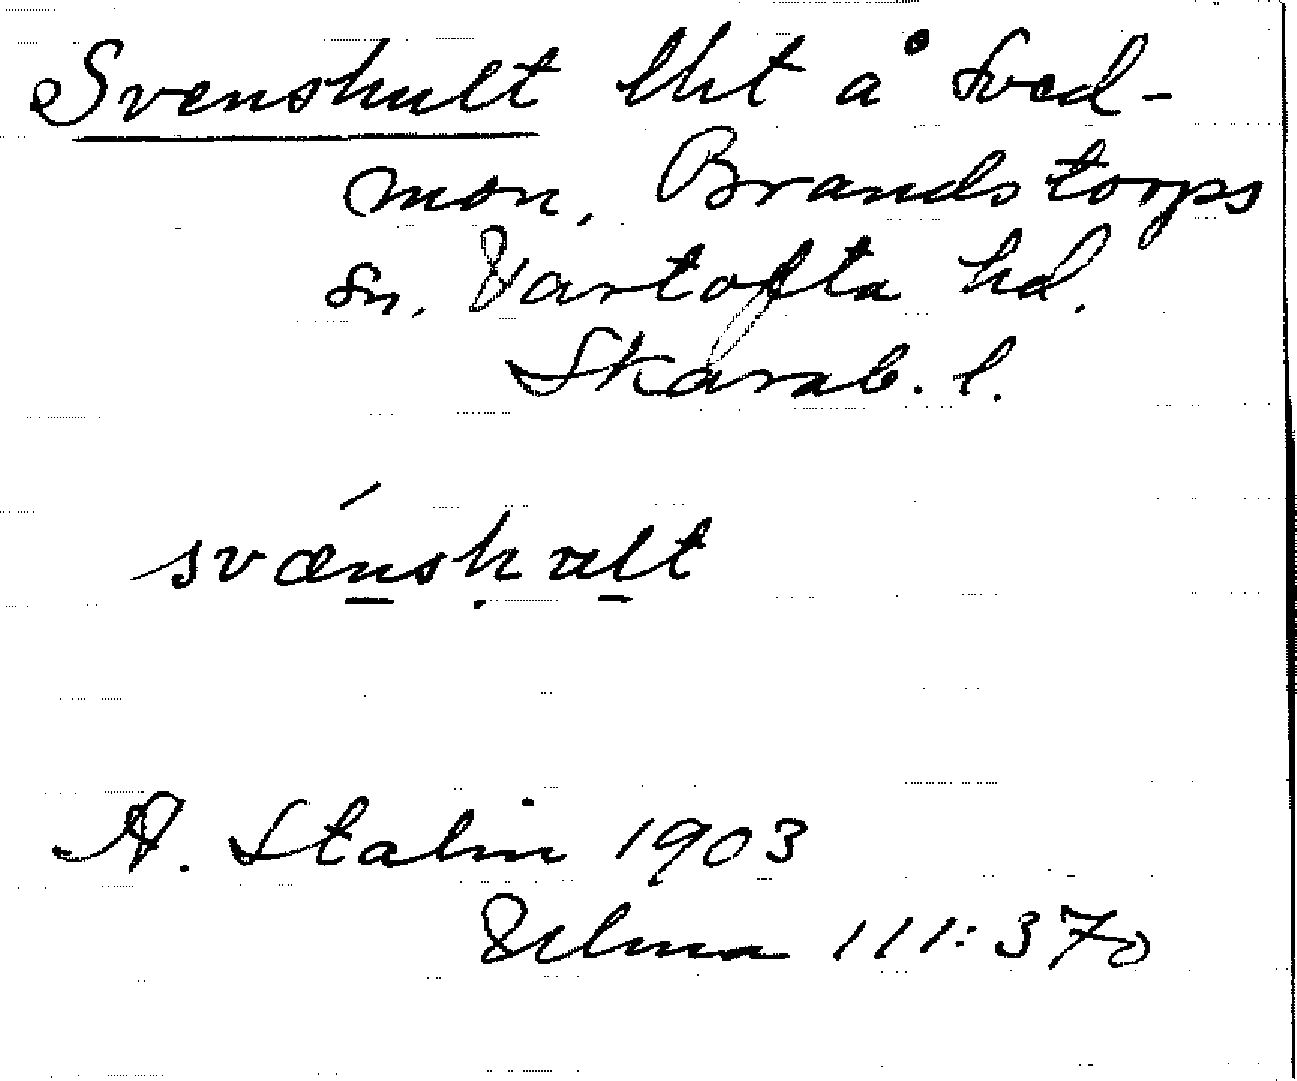 Svenshult lht å Sved-
mon, Brandstorps
sn. Vartofta hd.
Skarab. l.
svænshult
A. Stalin 1903
Ulma 111:370